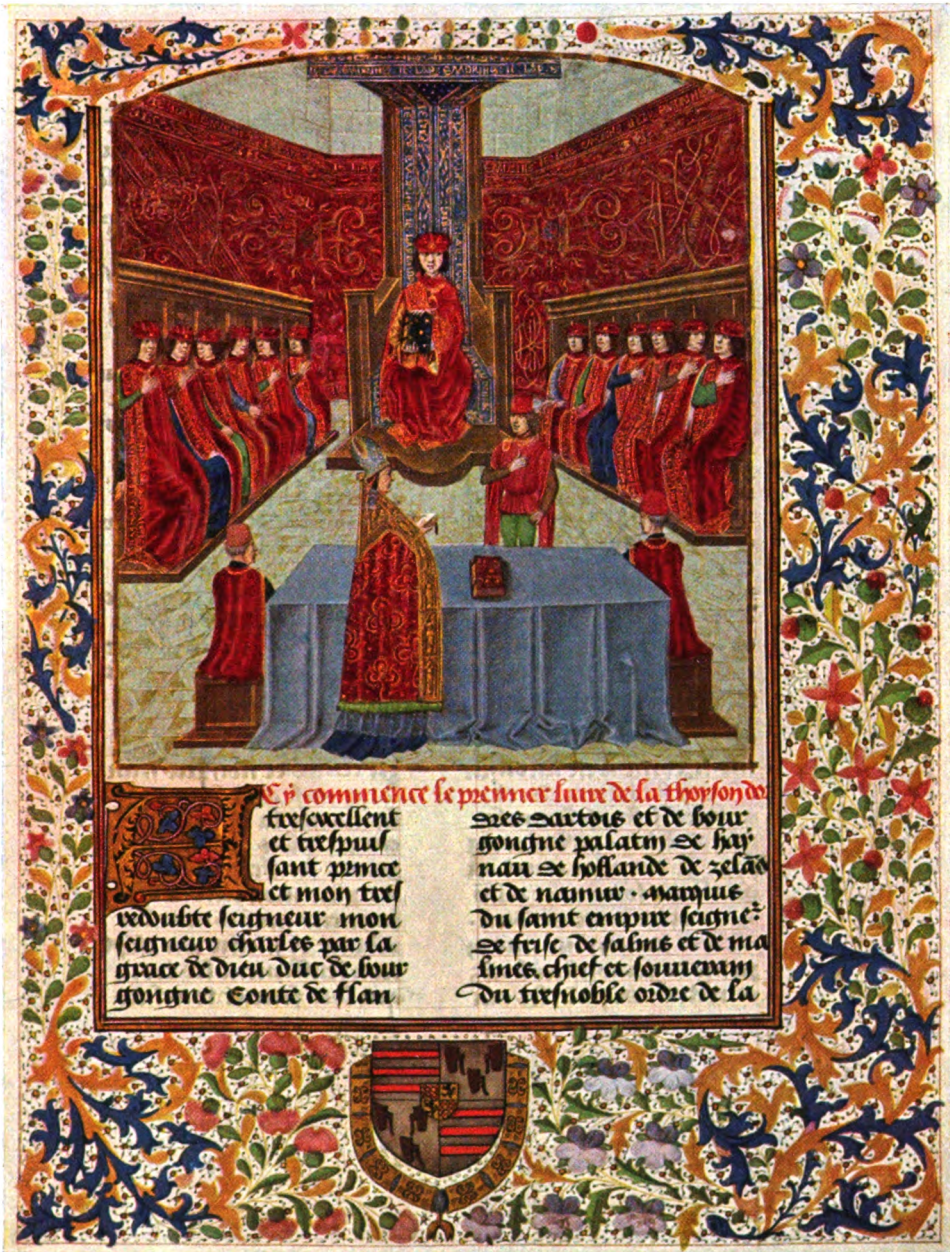 Cy commence le premier livre de la thoyson dor
A
tresexcellent
et trespuis
sant prince
et mon tres
redoubte seigneur mon
seigneur charles par la
grace de dieu duc de bour
gongne Conte de flan
dres dartois et de bour
gongne palatin de hay
nau de hollande de zelãd
et de namur. marquis
du saint empire seigne
de frise de salins et de ma
lines. chief et souverain
du tresnoble ordre de la